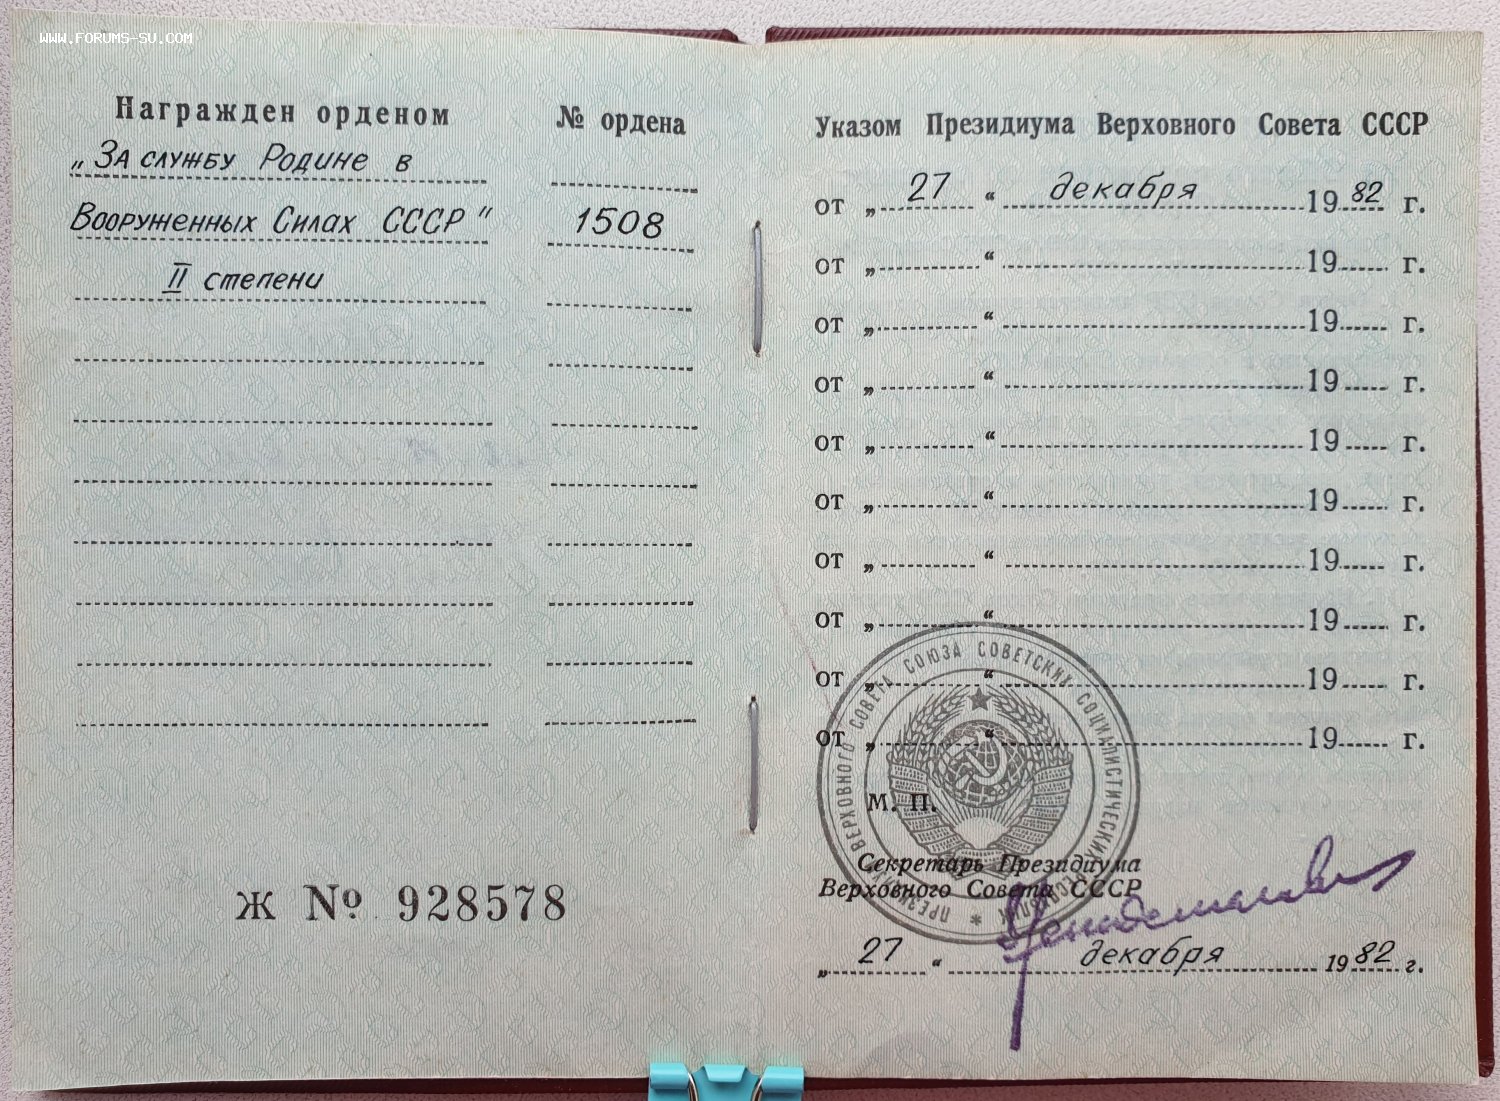 WWW.FORUMS-SU.COM
Награжден орденом
№ ордена
„За службу Родине в
Вооруженных Силах СССР"
1508
II степени
Ж № 928578
Указом Президиума Верховного Совета СССР
от „ 27 “ декабря 19 82 г.
от „ “ 19 г.
от „ “ 19 г.
от „ “ 19 г.
от „ “ 19 г.
от „ “ 19 г.
от „ “ 19 г.
от „ “ 19 г.
от „ “ 19 г.
от „ “ 19 г.
ПРЕЗИДИУМ ВЕРХОВНОГО СОВЕТА СОЮЗА СОВЕТСКИХ СОЦИАЛИСТИЧЕСКИХ РЕСПУБЛИК *
М. П.
Секретарь Президиума
Верховного Совета СССР
„ 27 “ декабря 19 82 г.